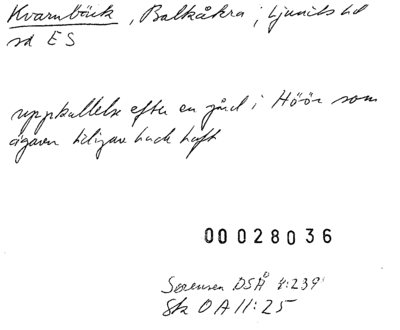 Kvarnbäck, Balkåkra, Ljunits hd
sd ES
uppkallelse efter en gård i Höör som
ägaren tidigare hade haft
00028036
Sørensen DSÅ 8:239
Sk OA 11:25